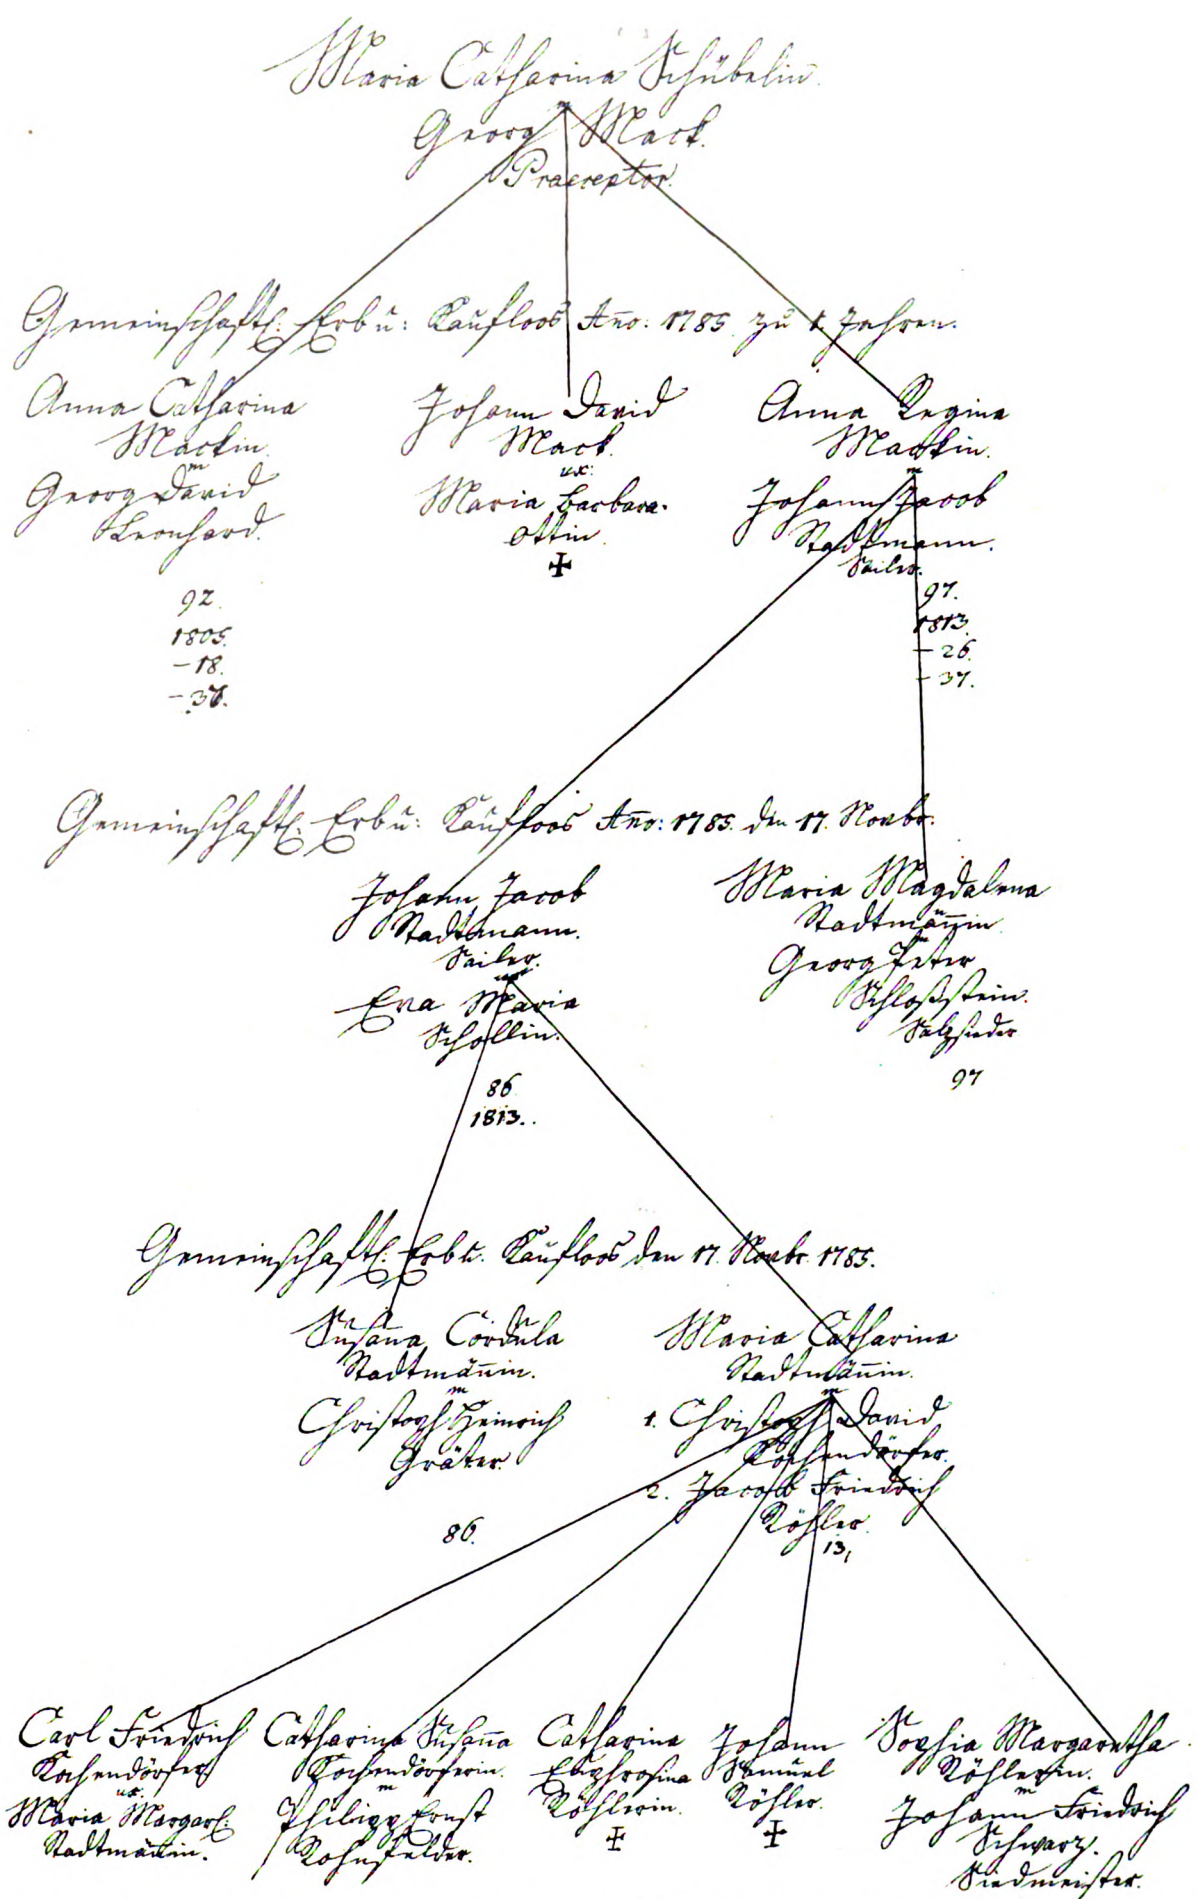 Maria Catharina Schübelin.
Georg Mack.
Praeceptor.
Gemeinschaftl: Erb u: Kaufloos Año: 1785 zu 1. Jahren.
Anna Catharina
Mackin.
m
Georg David
Leonhard.
92.
1805.
-18.
-37.
Johann David
Mack.
ux:
Maria Barbara
Ottin.
✠
Anna Regina
Mackin.
m
Johann Jacob
Stadtmann.
Sailer.
97.
1813.
-26.
-37.
Gemeinschaftl: Erb u: Kaufloos Año: 1785. den 17. Novbr.
Johann Jacob
Stadtmann.
Sailer.
ux
Eva Maria
Schollin.
86
1813.
Maria Magdalena
Stadtmäñin
m
Georg Peter
Schloßstein.
Salzsieder
97
Gemeinschaftl: Erb u. Kaufloos den 17. Novbr. 1785.
Susaña Cordula
Stadtmäñin.
m
Christoph Heinrich
Gräter.
86.
Maria Catharina
Stadtmäñin.
m
1. Christoph David
Kochendörfer.
2. Jacob Friedrich
Röhler.
13,
Carl Friedrich
Kochendörfer
ux.
Maria Margarl:
Stadtmäñin.
Catharina Susaña
Kochendörferin.
m
Philipp Ernst
Rohnfelder.
Catharina
Euphrosina
Röhlerin.
✠
Johann
Samuel
Röhler.
✠
Sophia Margaretha
Röhlerin.
m
Johann Friedrich
Schwarz.
Siedmeister.